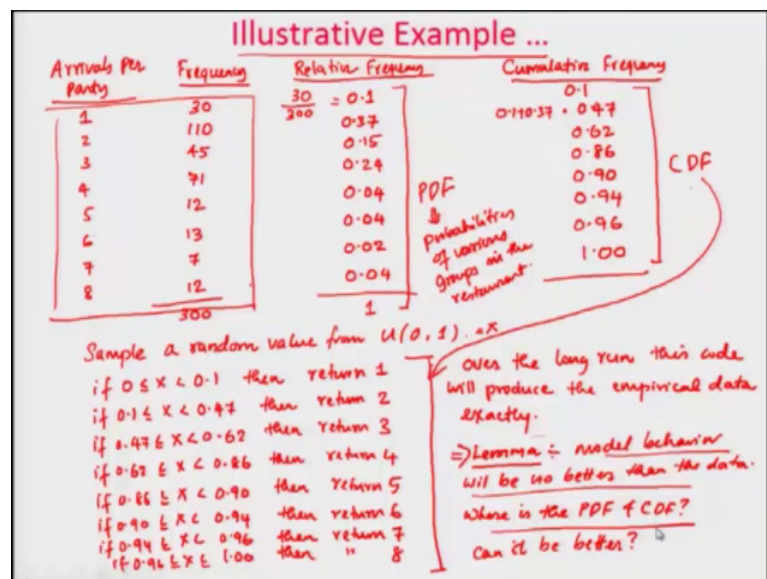 Illustrative Example ...
Arrivals Per Party Frequency Relative Frequency Cumulative Frequency
1 30 30/300 = 0.1 0.1
2 110 0.37 0.1+0.37 = 0.47
3 45 0.15 0.62
4 71 0.24 0.86
5 12 0.04 0.90
6 13 0.04 0.94
7 7 0.02 0.96
8 12 0.04 1.00
300 1
PDF
⇓
probabilities
of various
groups in the
restaurant.
CDF
Sample a random value from U(0,1). = x
if 0 ≤ x < 0.1 then return 1
if 0.1 ≤ x < 0.47 then return 2
if 0.47 ≤ x < 0.62 then return 3
if 0.62 ≤ x < 0.86 then return 4
if 0.86 ≤ x < 0.90 then return 5
if 0.90 ≤ x < 0.94 then return 6
if 0.94 ≤ x < 0.96 then return 7
if 0.96 ≤ x ≤ 1.00 then " 8
over the long run this code
will produce the empirical data
exactly.
⇒ Lemma ÷ model behavior
will be no better than the data.
Where is the PDF & CDF?
Can it be better?